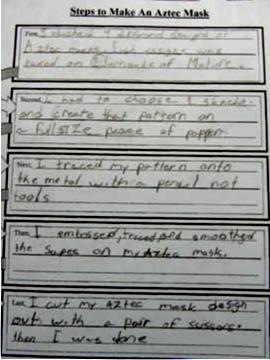 Steps to Make An Aztec Mask
First, I sketched 4 different designs of
Aztec masks. Each was
based on Elements of Nature.
Second, I had to choose 1 sketch
and create that pattern on
a full size peace of papper.
Next, I traced my pattern onto
the metal with a pencil not
tools
Then, I embossed, traced, and smoothed
the sapes on my Aztec mask.
Last, I cut my Aztec mask design
out with a pair of scissors.
then I was done